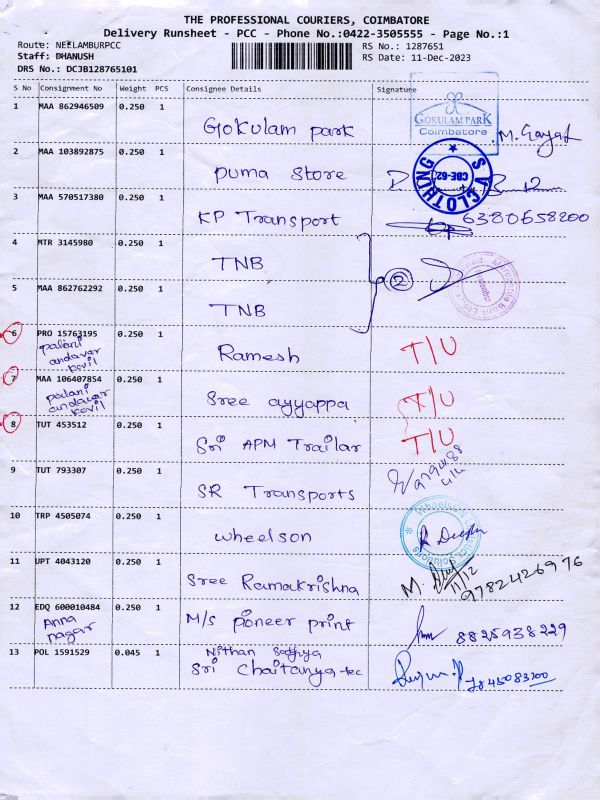 THE PROFESSIONAL COURIERS, COIMBATORE
Delivery Runsheet - PCC - Phone No.:0422-3505555 - Page No.:1
Route: NEELAMBURPCC
RS No.: 1287651
Staff: DHANUSH
RS Date: 11-Dec-2023
DRS No.: DCJB128765101
S No Consignment No Weight PCS Consignee Details Signature
1 MAA 862946509 0.250 1
Gokulam park
GOKULAM PARK
Coimbatore
2 MAA 103892875 0.250 1
puma store
S V CLOTHING
CBE-62
3 MAA 570517380 0.250 1
KP Transport
6380658200
4 MTR 3145980 0.250 1
TNB
2
5 MAA 862762292 0.250 1
TNB
6 PRO 15763195 0.250 1
palani
andavar
kovil
Ramesh
T/U
7 MAA 106407854 0.250 1
palani
andavar
kovil
Sree ayyappa
T/U
8 TUT 453512 0.250 1
Sri APM Trailar
T/U
9 TUT 793307 0.250 1
SR Transports
10 TRP 4505074 0.250 1
wheelson
11 UPT 4043120 0.250 1
Sree Ramakrishna
11/12
9782426976
12 EDQ 600010484 0.250 1
Anna
nagar
M/s pioneer print
8825938229
13 POL 1591529 0.045 1
Nithan
Sri Chaitanya-tec
7845083200